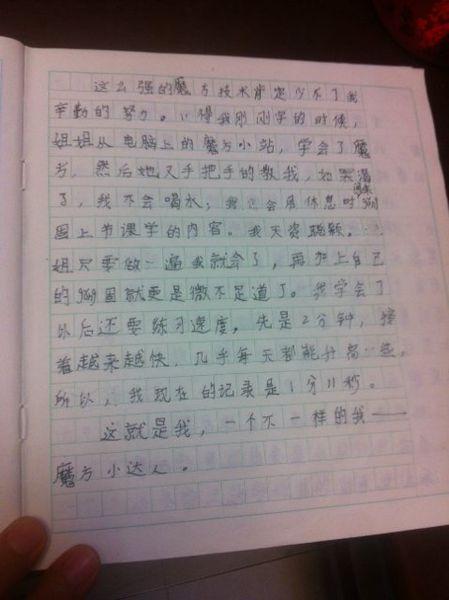 这么强的魔方技术肯定少不了我
辛勤的努力。记得我刚刚学的时候,
姐姐从电脑上的魔方小站,学会了魔
方,然后她又手把手的教我,她累渴
了,我不会喝水;我还会用休息时
固上节课学的内容。我天资聪颖,
姐只要做一遍我就会了,再加上自己
的巩固就更是微不足道了。我学会了
以后还要练习速度,先是2分钟,接
着越来越快,几乎每天都能升高一些。
所以,我现在的记录是1分11秒。
这就是我,一个不一样的我——
魔方小达人。